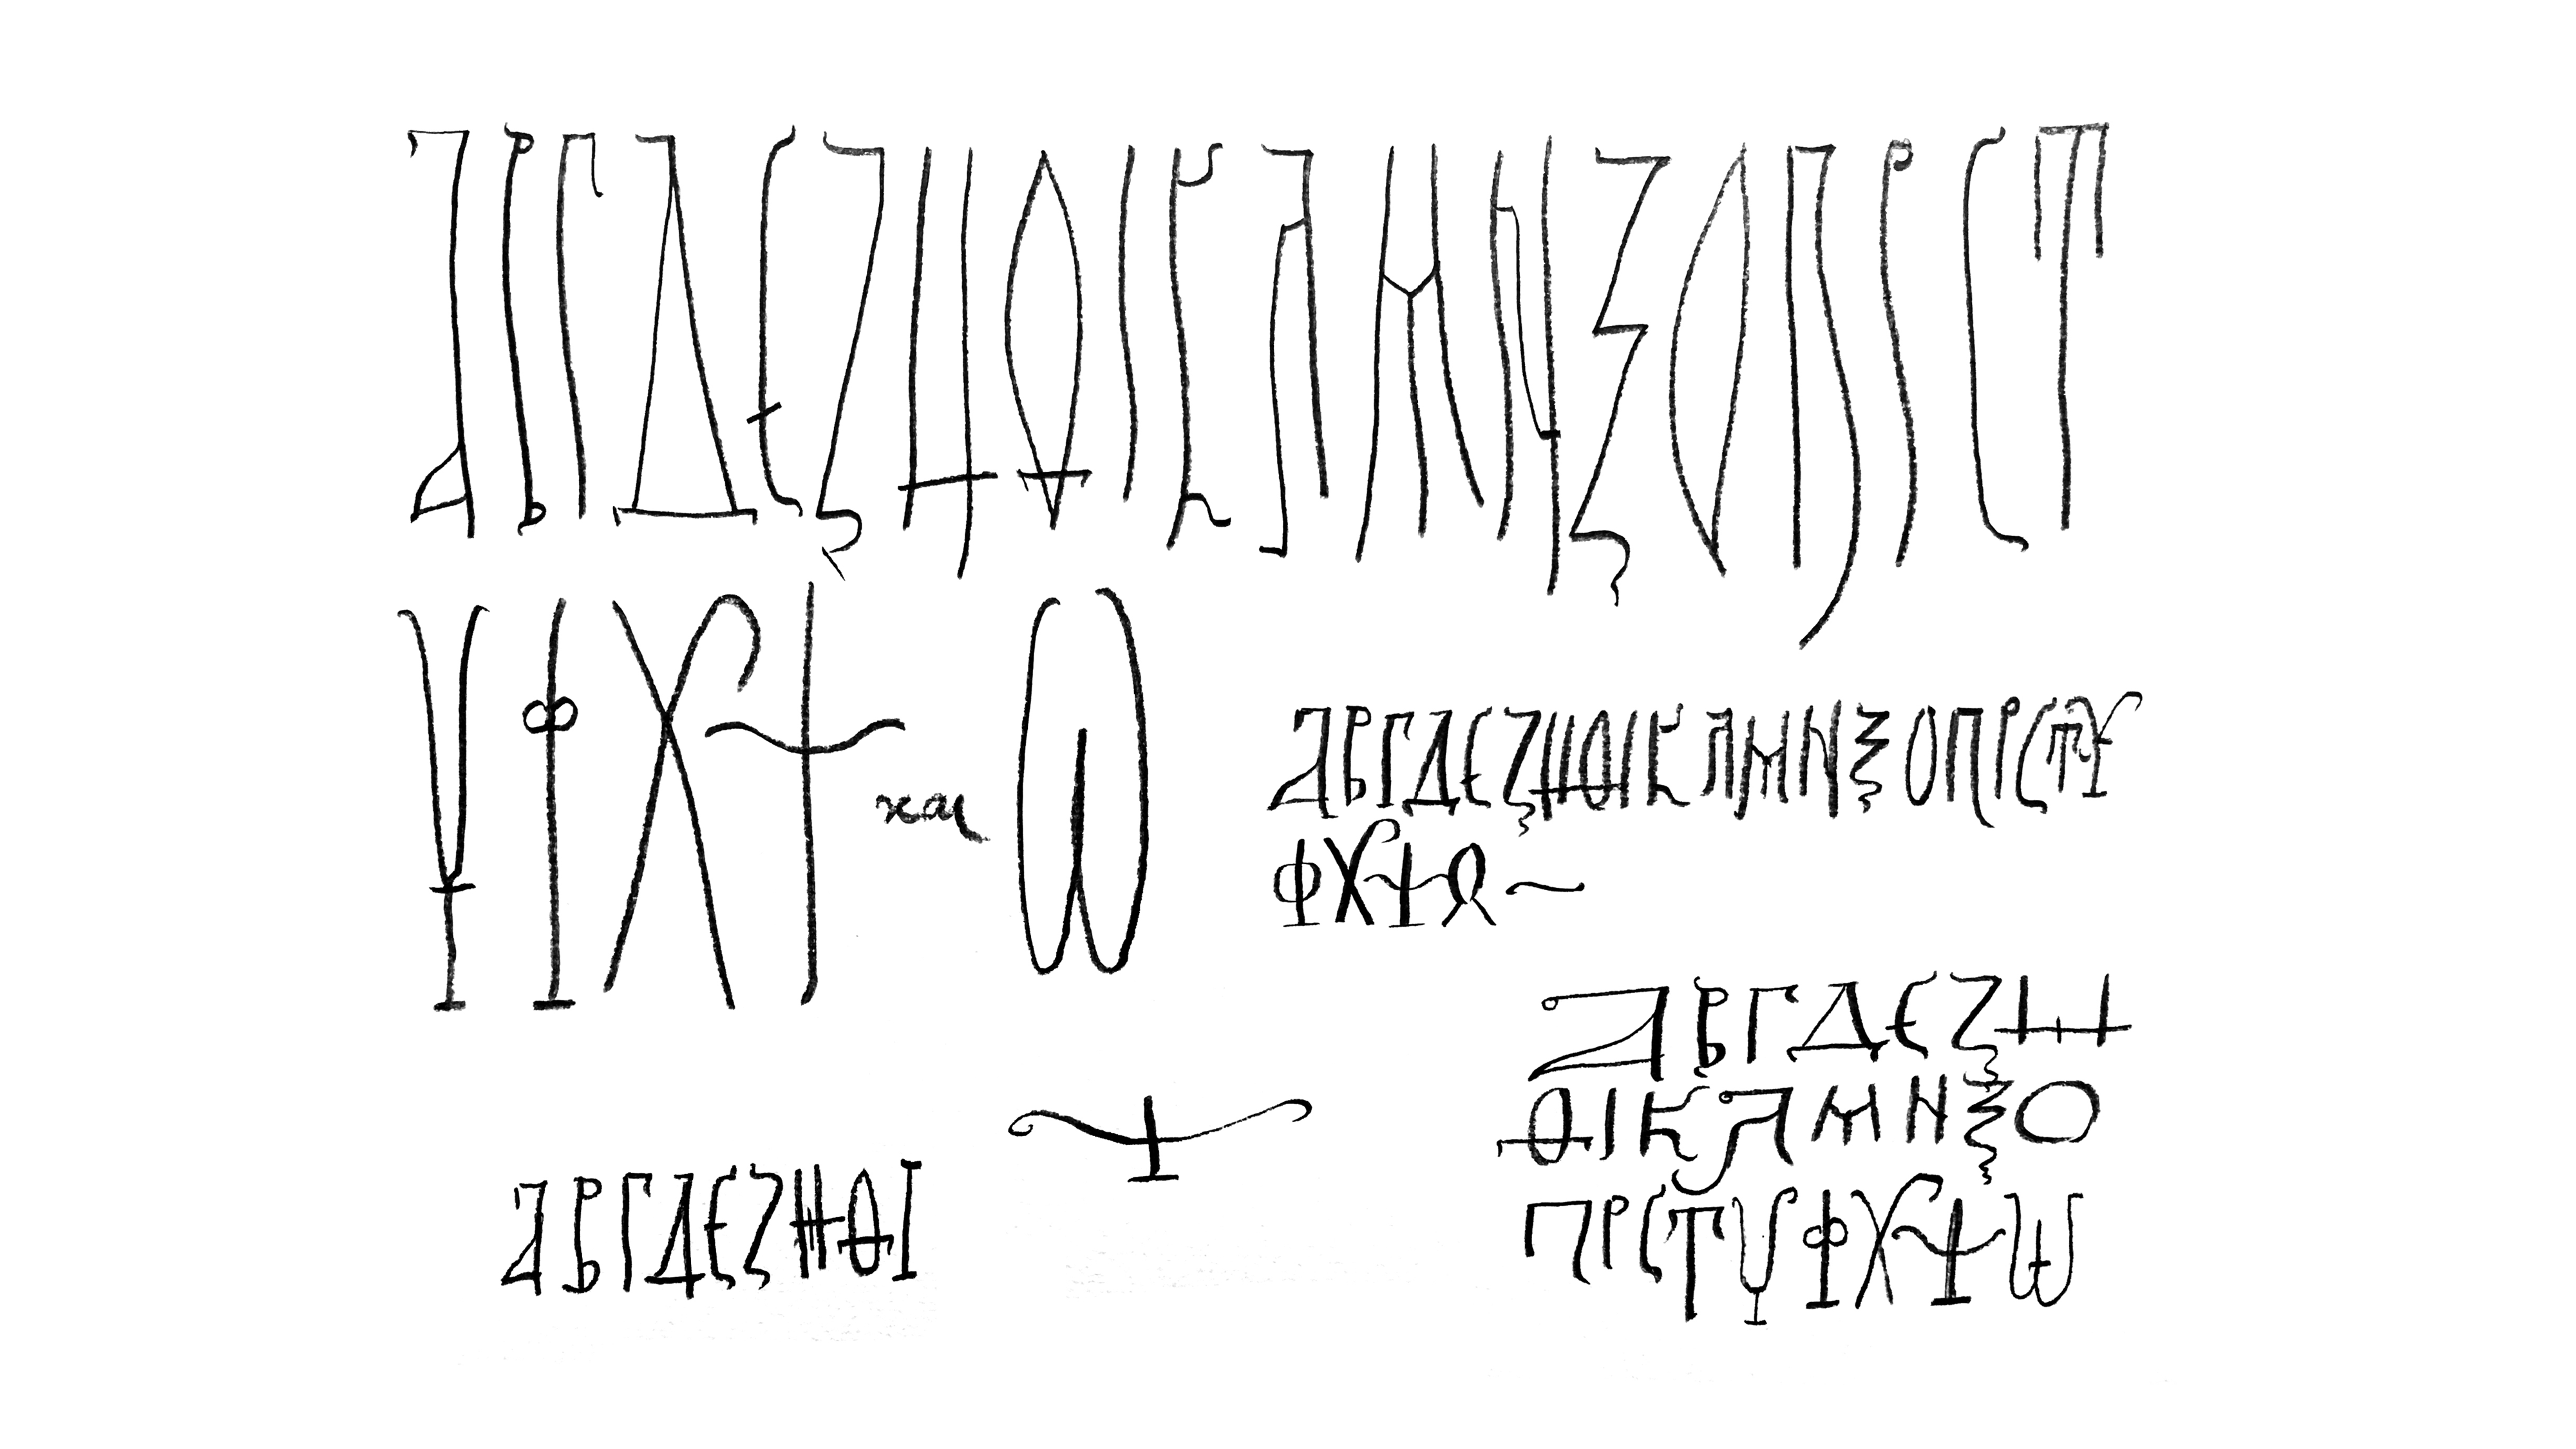 ΑΒΓΔΕΖΗΘΙΚΛΜΝΞΟΠΡΣΤ
ΥΦΧΨ και Ω
ΑΒΓΔΕΖΗΘΙΚΛΜΝΞΟΠΡΣΤΥ
ΦΧΨΩ~
ΑΒΓΔΕΖΗ
ΘΙΚΛΜΝΞΟ
ΠΡΣΤΥΦΧΨΩ
Ψ
ΑΒΓΔΕΖΗΘΙ